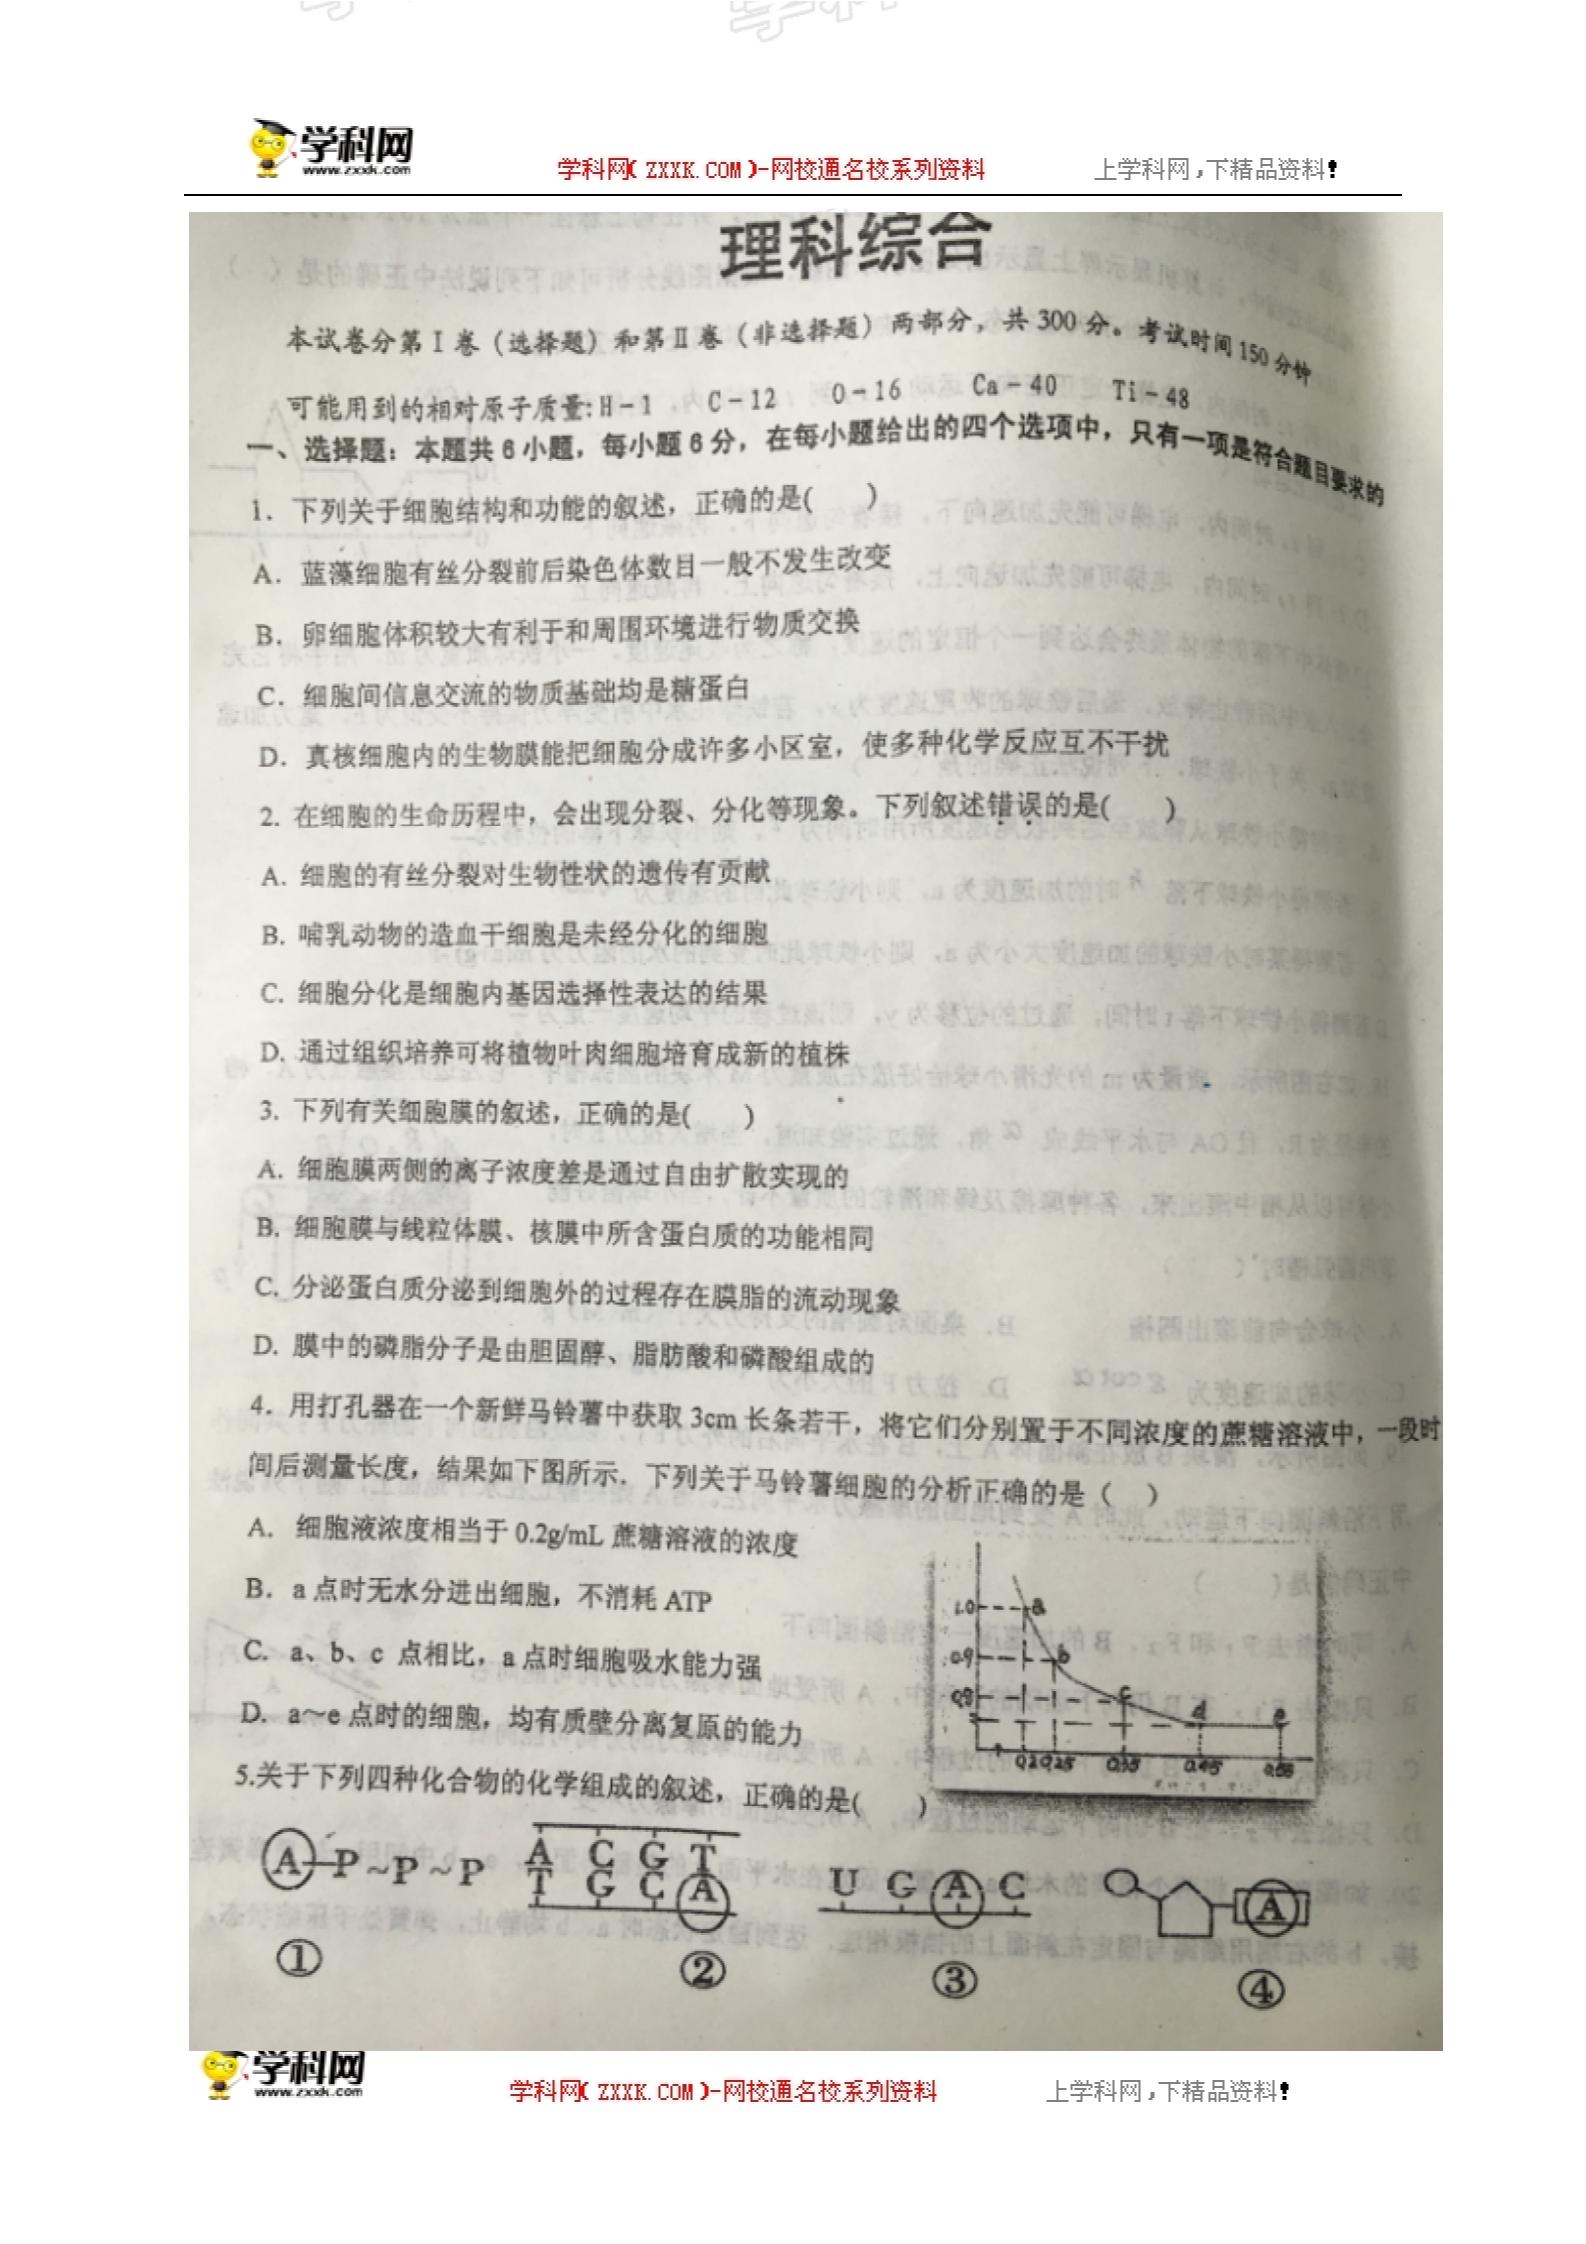 学科网
www.zxxk.com
学科网(ZXXK.COM)-网校通名校系列资料
上学科网,下精品资料!
理科综合
本试卷分第Ⅰ卷(选择题)和第Ⅱ卷(非选择题)两部分,共300分。考试时间150分钟
可能用到的相对原子质量:H-1 C-12 O-16 Ca-40 Ti-48
一、选择题:本题共6小题,每小题6分,在每小题给出的四个选项中,只有一项是符合题目要求的
1. 下列关于细胞结构和功能的叙述,正确的是( )
A. 蓝藻细胞有丝分裂前后染色体数目一般不发生改变
B. 卵细胞体积较大有利于和周围环境进行物质交换
C. 细胞间信息交流的物质基础均是糖蛋白
D. 真核细胞内的生物膜能把细胞分成许多小区室,使多种化学反应互不干扰
2. 在细胞的生命历程中,会出现分裂、分化等现象。下列叙述错误的是( )
A. 细胞的有丝分裂对生物性状的遗传有贡献
B. 哺乳动物的造血干细胞是未经分化的细胞
C. 细胞分化是细胞内基因选择性表达的结果
D. 通过组织培养可将植物叶肉细胞培育成新的植株
3. 下列有关细胞膜的叙述,正确的是( )
A. 细胞膜两侧的离子浓度差是通过自由扩散实现的
B. 细胞膜与线粒体膜、核膜中所含蛋白质的功能相同
C. 分泌蛋白质分泌到细胞外的过程存在膜脂的流动现象
D. 膜中的磷脂分子是由胆固醇、脂肪酸和磷酸组成的
4. 用打孔器在一个新鲜马铃薯中获取3cm长条若干,将它们分别置于不同浓度的蔗糖溶液中,一段时
间后测量长度,结果如下图所示. 下列关于马铃薯细胞的分析正确的是( )
A. 细胞液浓度相当于0.2g/mL蔗糖溶液的浓度
B. a点时无水分进出细胞,不消耗ATP
C. a、b、c 点相比,a点时细胞吸水能力强
D. a～e点时的细胞,均有质壁分离复原的能力
1.0 a
0.9 b
c
d e
0.2 0.25 0.35 0.45 0.55
5.关于下列四种化合物的化学组成的叙述,正确的是( )
A—P~P~P
A C G T
T G C A
U G A C
A
① ② ③ ④
学科网
www.zxxk.com
学科网(ZXXK.COM)-网校通名校系列资料
上学科网,下精品资料!